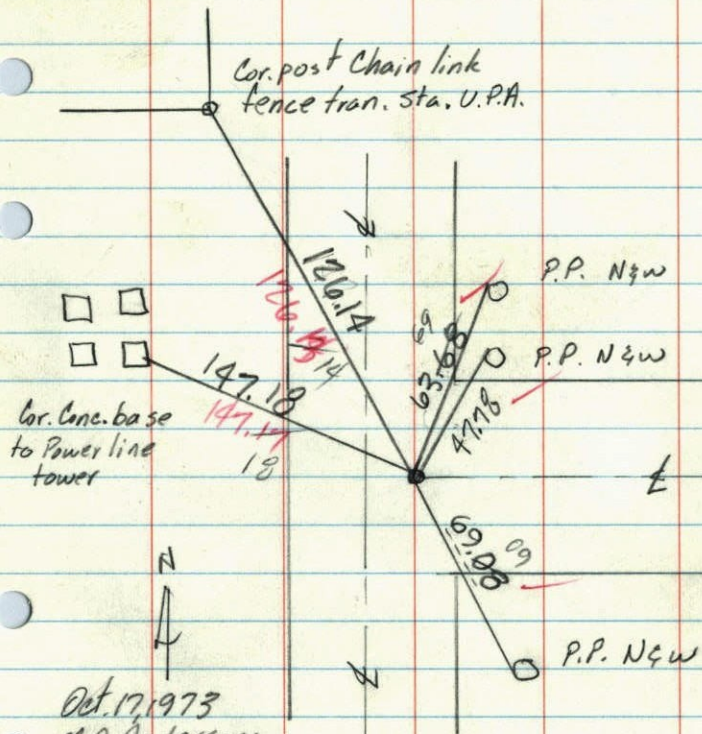 Cor. post Chain link
fence tran. sta. U.P.A.
℄
126.14
126.13
14
P.P. N&W
69
63.68
P.P. N&W
47.78
147.18
147.17
18
Cor. Conc. base
to Power line
tower
℄
69.08
09
N
℄
P.P. N&W
Oct. 17, 1973